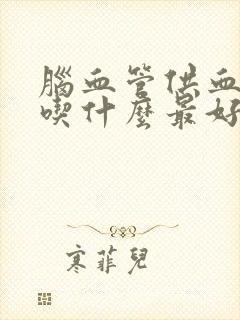 腦血管供血
喫什麼最好
寒菲兒